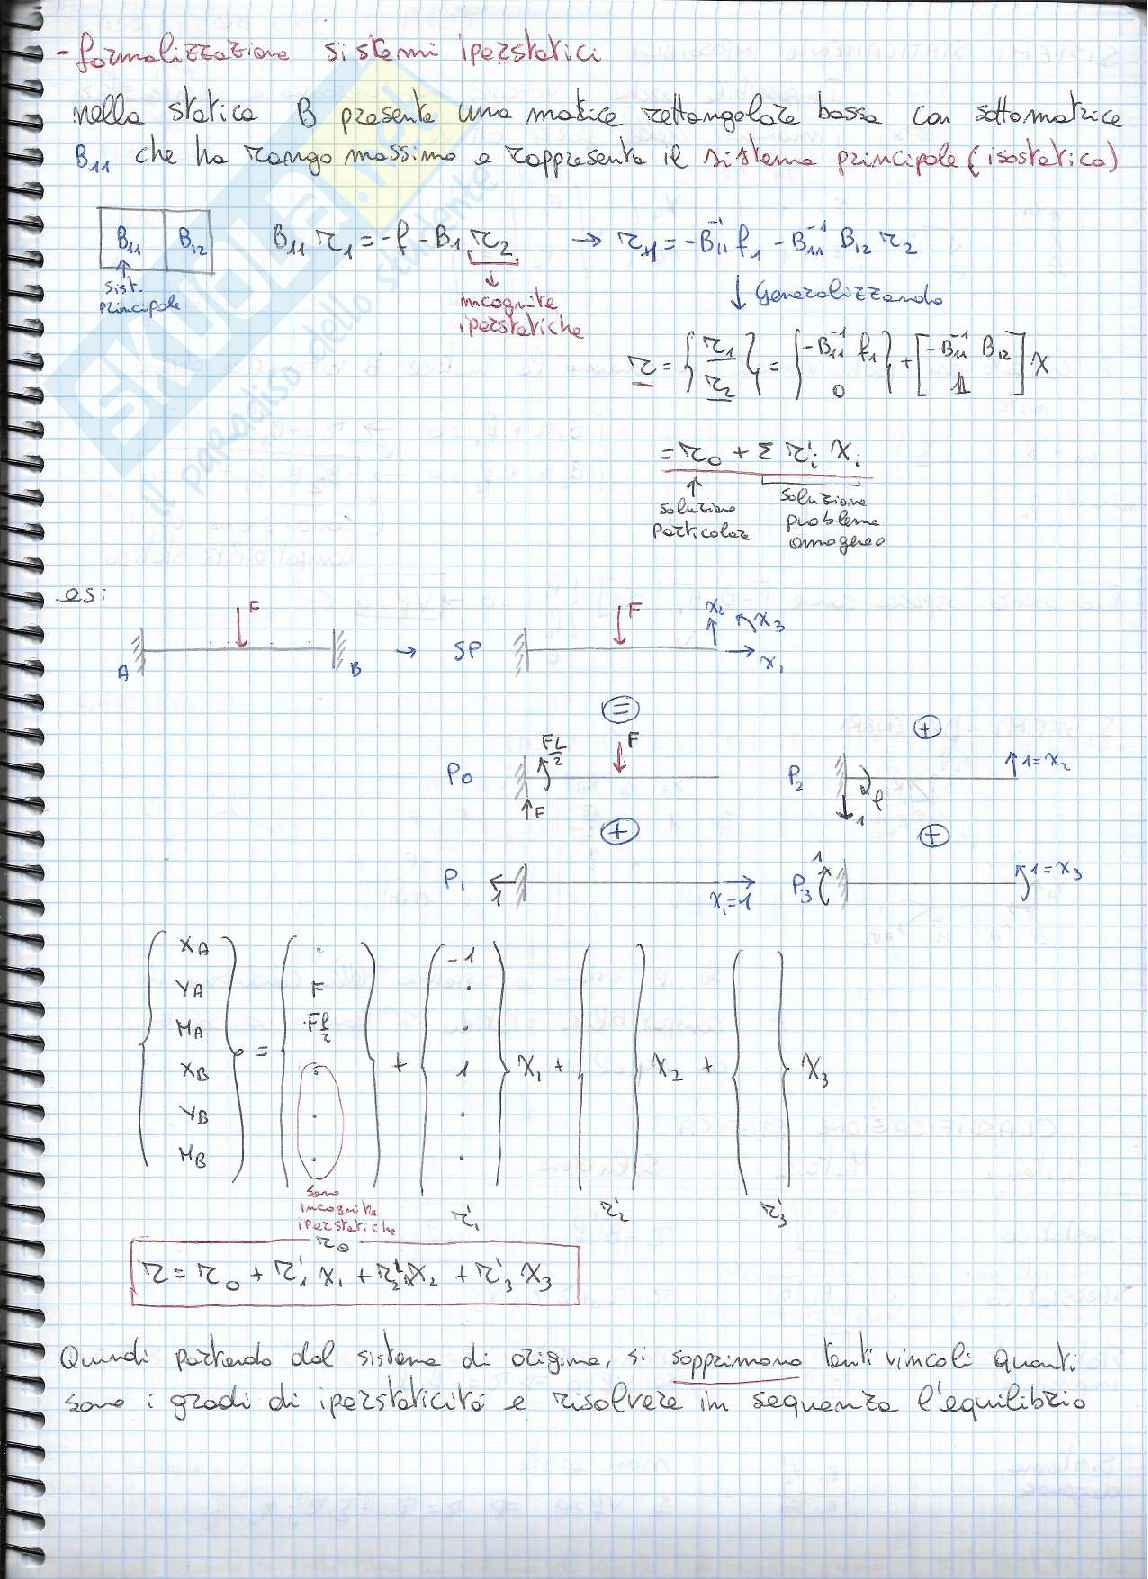 - formalizzazione sistemi iperstatici
nella statica B presenta una matrice rettangolare bassa con sottomatrice
B₁₁ che ha rango massimo e rappresenta il sistema principale (isostatico)
B₁₁ B₁₂
sist.
principale
B₁₁ r₁ = -f - B₁ r₂ → r₁ = -B₁₁⁻¹ f₁ - B₁₁⁻¹ B₁₂ r₂
incognite
iperstatiche
↓ Generalizzando
r = {r₁ r₂} = {-B₁₁⁻¹ f₁ 0} + [-B₁₁⁻¹ B₁₂ 1] X
= r₀ + Σ r'ᵢ Xᵢ
soluzione
particolare
soluzione
problema
omogeneo
es:
A F B → SP F X₂ X₃ X₁
=
P₀ FL/2 F F
+
P₂ 1 ℓ 1=X₂
+
P₁ 1 X₁=1
+
P₃ 1 1=X₃
XA · -1
YA F ·
MA Fℓ/2 ·
XB = · + 1 X₁ + X₂ + X₃
YB · ·
MB · ·
sono
incognite
iperstatiche
r₀ r'₁ r'₂ r'₃
r = r₀ + r'₁ X₁ + r'₂ X₂ + r'₃ X₃
Quindi partendo dal sistema di origine, si sopprimono tanti vincoli quanti
sono i gradi di iperstaticità e risolvere in sequenza l'equilibrio
SKUOLA.N
il paradiso dello studente